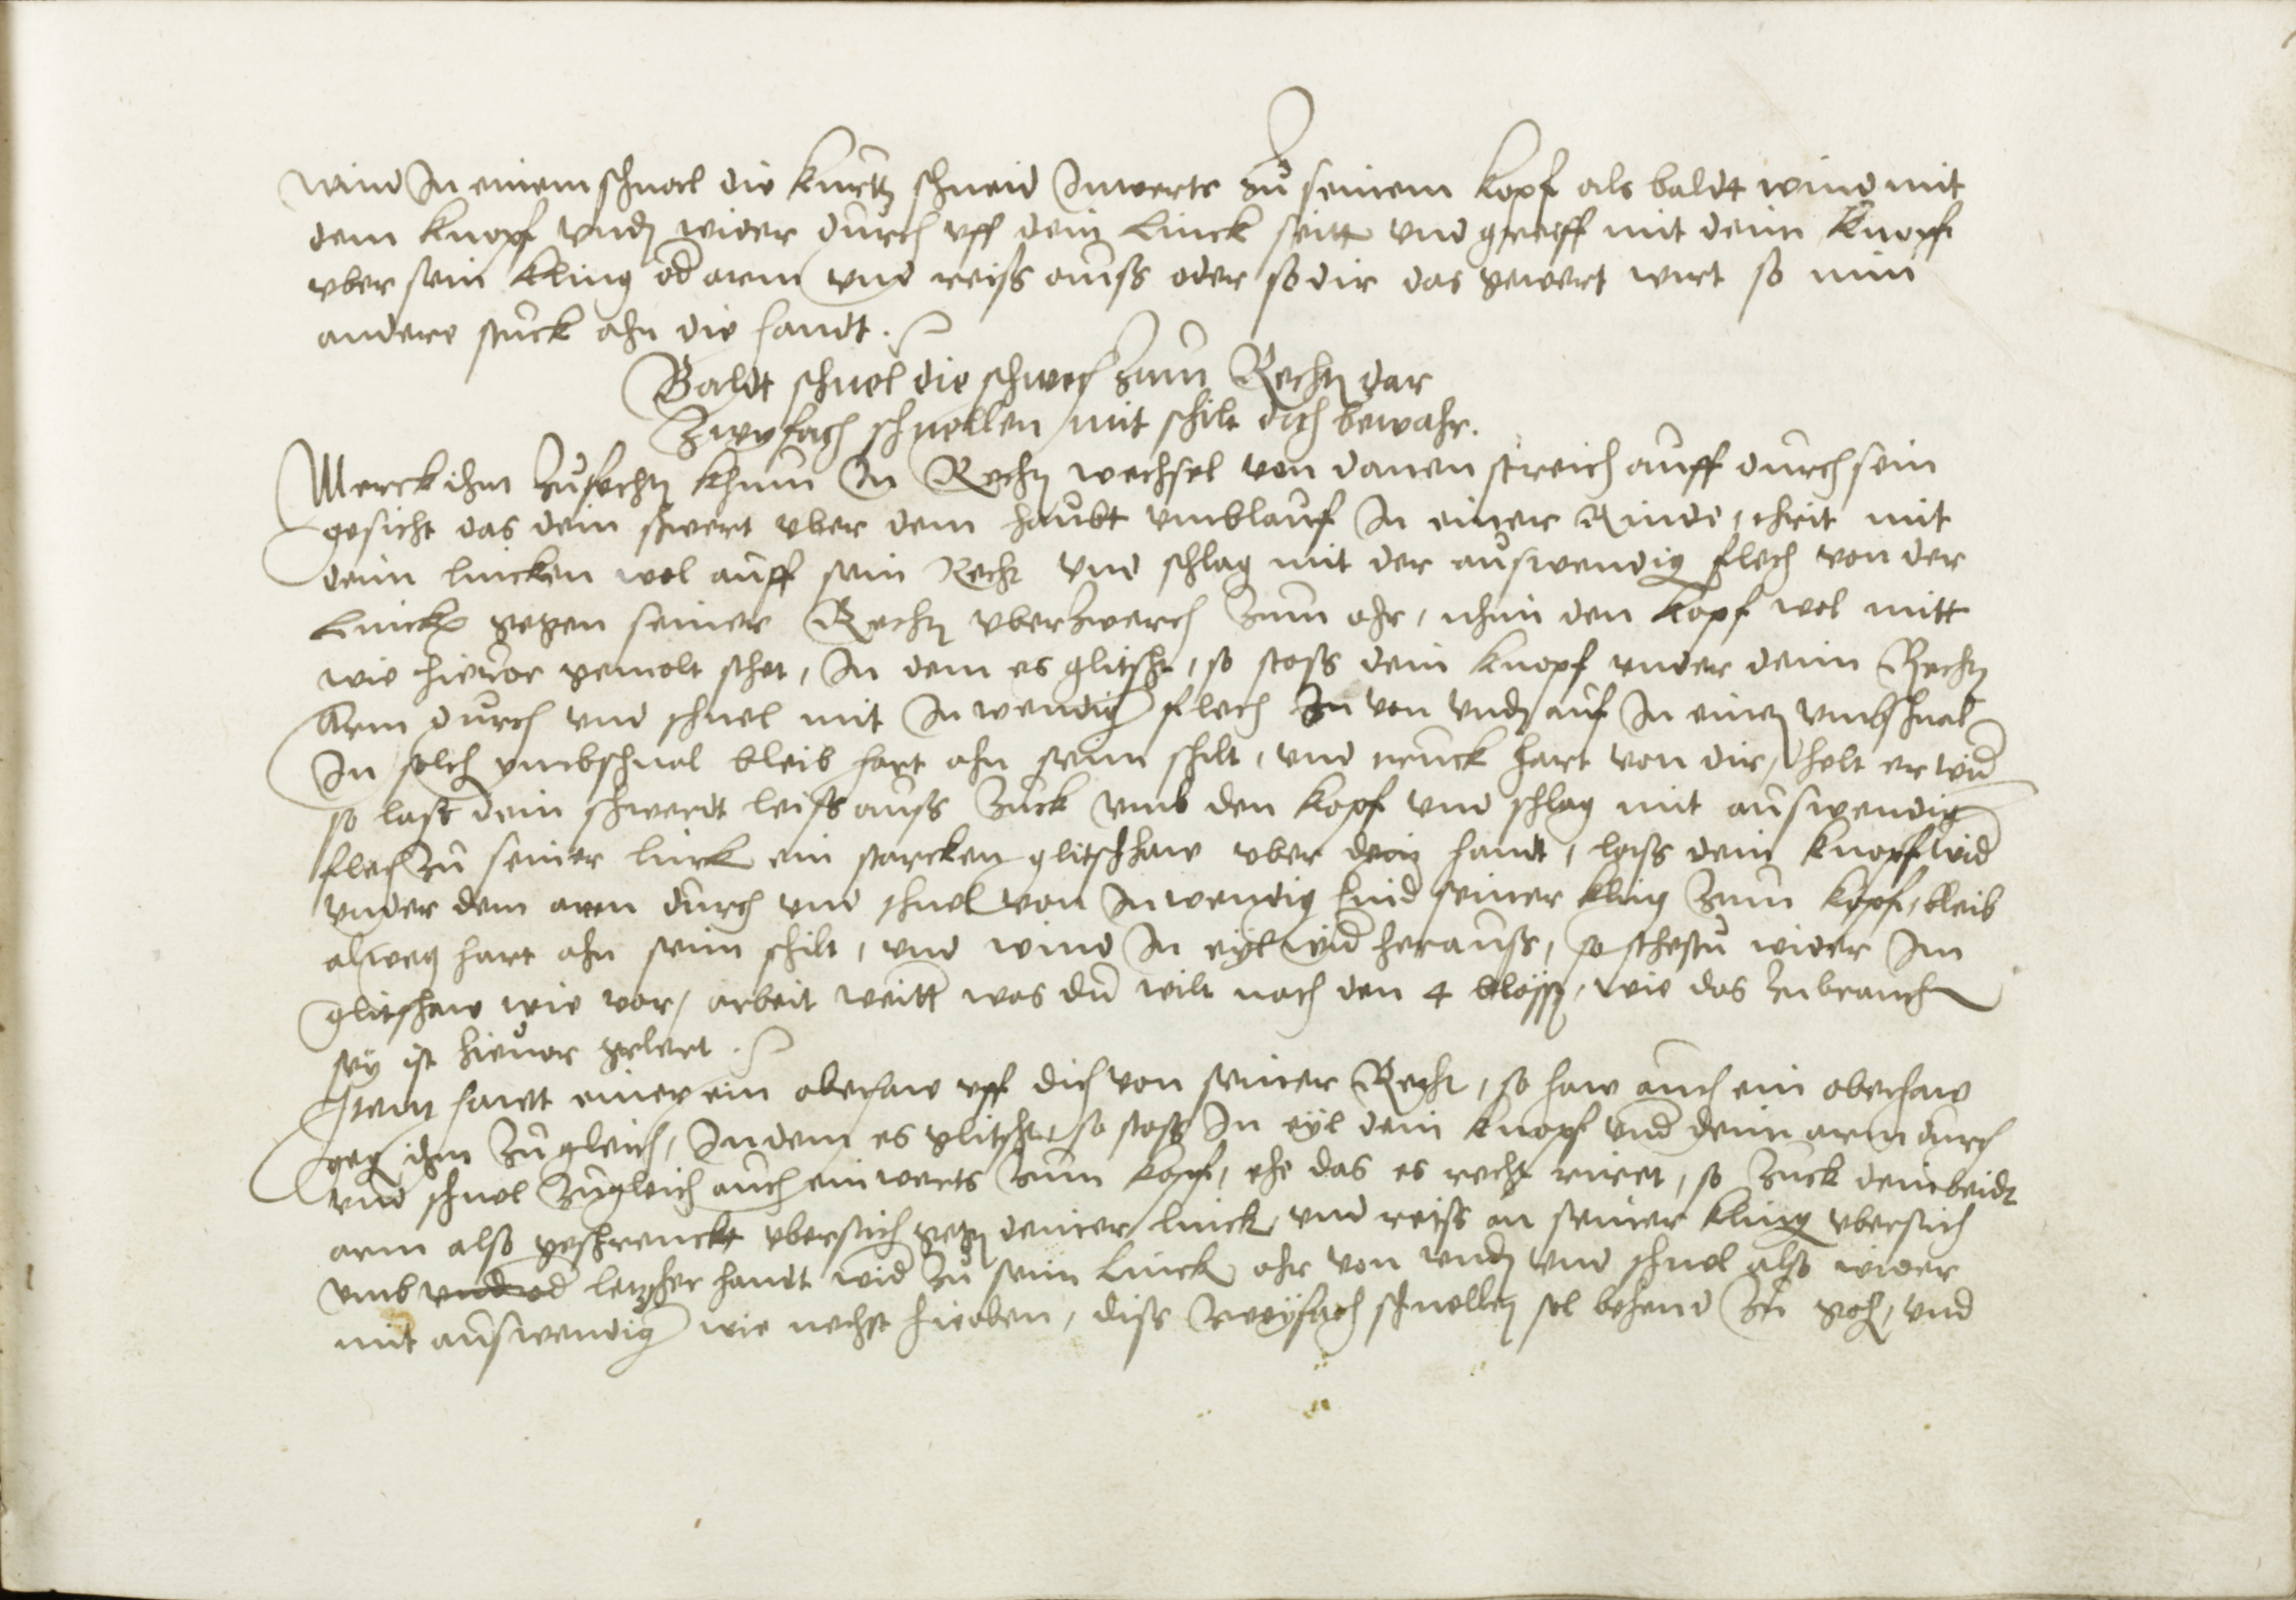 wind In einem schnal die kurtz schneid Inwerts zu seinem kopf als baldt wind mit
dem knopf undꝫ wider durch uff dein Linck seitt und greiff mit deim knopf
uber sein kling od arm und reiss auss oder so dir das gewert wirt so nim
andere stuck ahn die handt.
Baldt schnel die schwech zum Rechtꝫ dar
Zwyfach schnellen mit schilt dich bewahr.
Merck ihm Zufechtꝫ khum In Rechtꝫ wechsel von danen streich auff durch sein
gesicht das dein schwert uber dem haubt umblauf In einer Rinde, thrit mit
deim lincken wol auff sein Recht und schlag mit der auswendig flech von der
Lincke gegen seiner Rechtꝫ uberzwerch zum ohr, nhim den kopf wol mitt
wie hievor gemolt sthet, In dem es glitscht, so stoss dein knopf under deim Rechtꝫ
Arm durch und schnel mit Inwendig flech von undꝫ auf In einꝫ umbschnal
In solch umbschnal bleib hart ahn seim schilt, und ruck hart von dir, helt er wid
so lass dein schwerdt leiss auss Zuck umb den kopf und schlag mit auswendig
flech zu seiner linck ein starcken glitschhaw uber dein handt, loss dein knopf wid
under dem arm durch und schnel von Inwendig hind seiner kling zum kopf, bleib
alweg hart ahn seim schilt, und wind In eyl wid herauss, so sthestu wider Im
glitschaw wie vor, arbeit weitt was du wilt nach den 4 blössꝫ, wie das zubrauch
sey ist hievor gelert.
Item hawt einer ein oberhaw uff dich von seiner Recht, so haw auch ein oberhaw
geg ihm Zugleich, Indem es glitscht, so stoss In eyl dein knopf und deim arm durch
und schnel Zugleich auch einwerts zum kopf, ehe das es recht riret, so Zuck dein beide
arm also geschrenckt ubersich gegꝫ deiner linck, und reiss an seiner kling ubersich
umb letzscher handt wid zu seim Linck ohr von undꝫ und schnel also wider
mit auswendig wie nechst hieoben, diss Zweyfach schnellen sol behend Zu geh, und